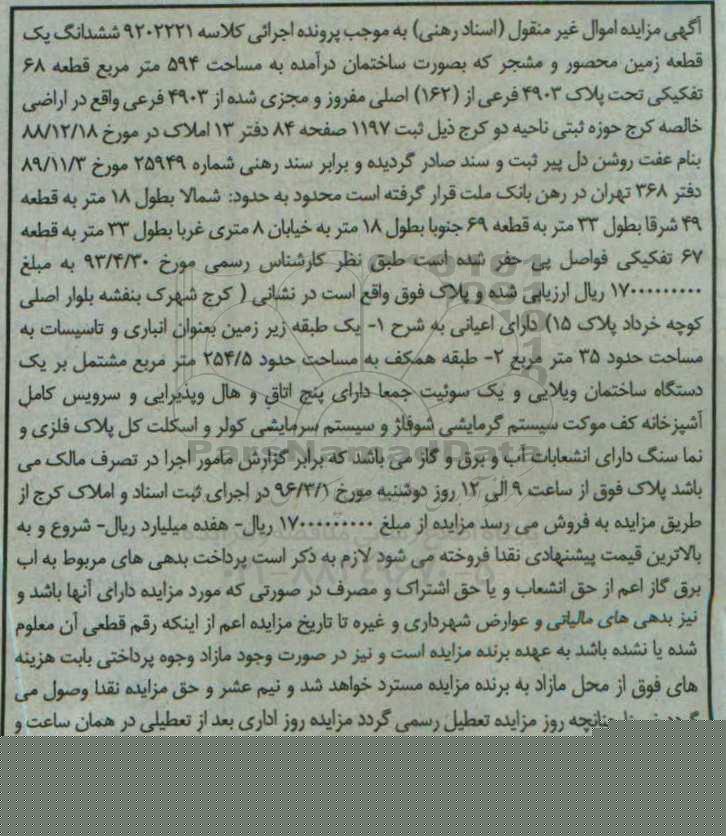 آگهی مزایده اموال غیر منقول (اسناد رهنی) به موجب پرونده اجرائی کلاسه ۹۲۰۲۲۲۱ ششدانگ یک
قطعه زمین محصور و مشجر که بصورت ساختمان درآمده به مساحت ۵۹۴ متر مربع قطعه ۶۸
تفکیکی تحت پلاک ۴۹۰۳ فرعی از (۱۶۲) اصلی مفروز و مجزی شده از ۴۹۰۳ فرعی واقع در اراضی
خالصه کرج حوزه ثبتی ناحیه دو کرج ذیل ثبت ۱۱۹۷ صفحه ۸۴ دفتر ۱۳ املاک در مورخ ۸۸/۱۲/۱۸
بنام عفت روشن دل پیر ثبت و سند صادر گردیده و برابر سند رهنی شماره ۲۵۹۴۹ مورخ ۸۹/۱۱/۳
دفتر ۳۶۸ تهران در رهن بانک ملت قرار گرفته است محدود به حدود: شمالا بطول ۱۸ متر به قطعه
۴۹ شرقا بطول ۳۳ متر به قطعه ۶۹ جنوبا بطول ۱۸ متر به خیابان ۸ متری غربا بطول ۳۳ متر به قطعه
۶۷ تفکیکی فواصل پی حفر شده است طبق نظر کارشناس رسمی مورخ ۹۳/۴/۳۰ به مبلغ
۱۷۰۰۰۰۰۰۰۰۰ ریال ارزیابی شده و پلاک فوق واقع است در نشانی ( کرج شهرک بنفشه بلوار اصلی
کوچه خرداد پلاک ۱۵) دارای اعیانی به شرح ۱- یک طبقه زیر زمین بعنوان انباری و تاسیسات به
مساحت حدود ۳۵ متر مربع ۲- طبقه همکف به مساحت حدود ۲۵۴/۵ متر مربع مشتمل بر یک
دستگاه ساختمان ویلایی و یک سوئیت جمعا دارای پنج اتاق و هال وپذیرایی و سرویس کامل
آشپزخانه کف موکت سیستم گرمایشی شوفاژ و سیستم سرمایشی کولر و اسکلت کل پلاک فلزی و
نما سنگ دارای انشعابات آب و برق و گاز می باشد که برابر گزارش مامور اجرا در تصرف مالک می
باشد پلاک فوق از ساعت ۹ الی ۱۲ روز دوشنبه مورخ ۹۶/۳/۱ در اجرای ثبت اسناد و املاک کرج از
طریق مزایده به فروش می رسد مزایده از مبلغ ۱۷۰۰۰۰۰۰۰۰۰ ریال- هفده میلیارد ریال- شروع و به
بالاترین قیمت پیشنهادی نقدا فروخته می شود لازم به ذکر است پرداخت بدهی های مربوط به اب
برق گاز اعم از حق انشعاب و یا حق اشتراک و مصرف در صورتی که مورد مزایده دارای آنها باشد و
نیز بدهی های مالیاتی و عوارض شهرداری و غیره تا تاریخ مزایده اعم از اینکه رقم قطعی آن معلوم
شده یا نشده باشد به عهده برنده مزایده است و نیز در صورت وجود مازاد وجوه پرداختی بابت هزینه
های فوق از محل مازاد به برنده مزایده مسترد خواهد شد و نیم عشر و حق مزایده نقدا وصول می
چنانچه روز مزایده تعطیل رسمی گردد مزایده روز اداری بعد از تعطیلی در همان ساعت و
ParsNamadData